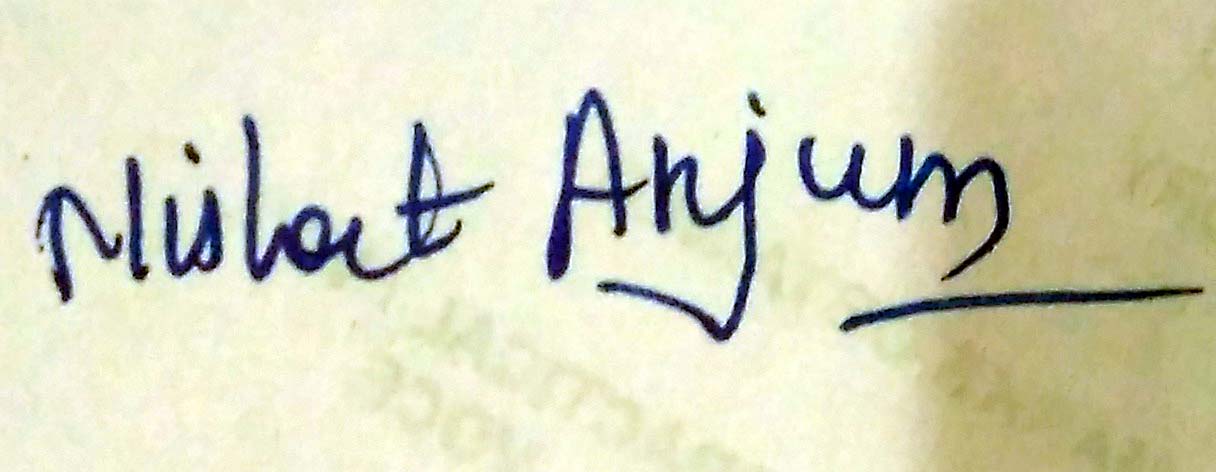 Nishat Anjum